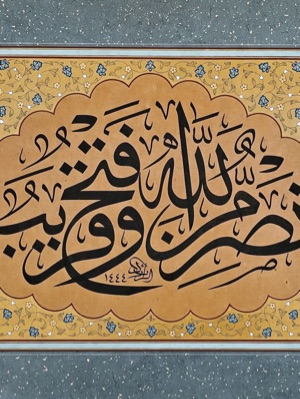 نَصْرٌ مِّنَ اللَّهِ وَفَتْحٌ قَرِيبٌ
١٤٤٤